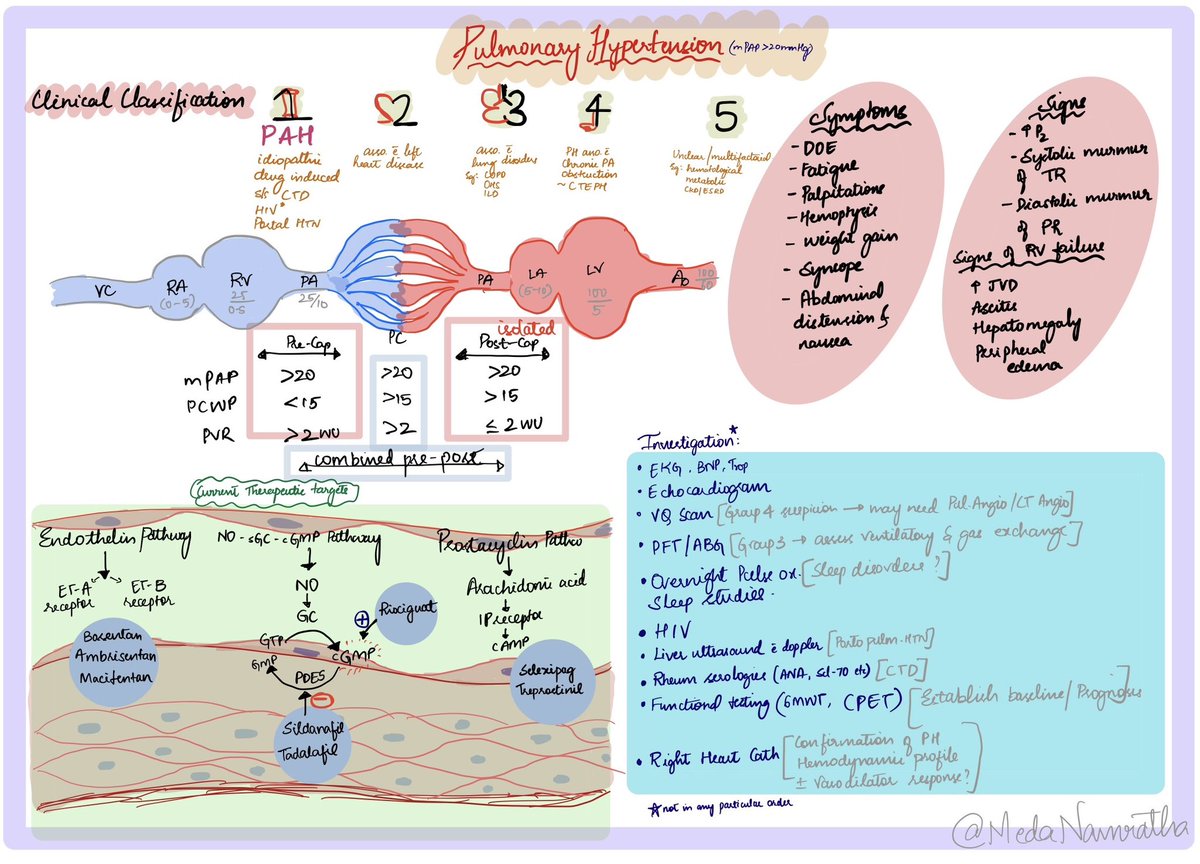 Pulmonary Hypertension (mPAP >20mmHg)
Clinical Classification
1
PAH
idiopathic
drug induced
s/s CTD
HIV*
Portal HTN
2
asso. c̄ left
heart disease
3
asso. c̄
lung disorders
Eg: COPD
OHS
ILD
4
PH asso. c̄
Chronic PA
obstruction
~ CTEPH
5
Unclear/multifactorial
Eg: hematological
metabolic
CKD/ESRD
Symptoms
- DOE
- Fatigue
- Palpitations
- Hemoptysis
- Weight gain
- Syncope
- Abdominal
distension &
nausea
Signs
- ↑P2
- Systolic murmur
of TR
- Diastolic murmur
of PR
Signs of RV failure
↑ JVD
Ascites
Hepatomegaly
Peripheral
edema
VC
RA
(0-5)
RV
25
0-5
PA
25/10
PC
PA
LA
(5-10)
LV
100
5
Ao
100
Pre-Cap
isolated
Post-Cap
mPAP >20 >20 >20
PCWP <15 >15 >15
PVR >2 WU >2 ≤ 2 WU
combined pre-post
Current Therapeutic targets
Endothelin Pathway
ET-A receptor
ET-B receptor
Bosentan
Ambrisentan
Macitentan
NO - sGC - cGMP Pathway
NO
GC
GTP
cGMP
GMP
PDE5
Riociguat
Sildanafil
Tadalafil
Prostacyclin Pathw
Arachidonic acid
IP receptor
cAMP
Selexipag
Treprostinil
Investigation*:
• EKG, BNP, Trop
• Echocardiogram
• VQ Scan [Group 4 suspicion → may need Pul. Angio/CT Angio]
• PFT/ABG [Group 3 → assess ventilatory & gas exchange]
• Overnight Pulse ox. [Sleep disorders?]
Sleep studies.
• HIV
• Liver ultrasound c̄ doppler [Porto pulm. HTN]
• Rheum serologies (ANA, Scl-70 etc) [CTD]
• Functional testing (6MWT, CPET) [Establish baseline/Prognosis]
• Right Heart Cath [Confirmation of PH
Hemodynamic profile
± Vasodilator response?]
* not in any particular order
@MedaNamratha